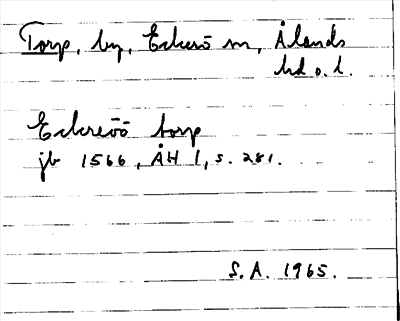 Torp, by, Eckerö sn, Ålands
hd o. l.
Eckreöö torp
jb 1566, ÅH 1, s. 281.
S. A. 1965.